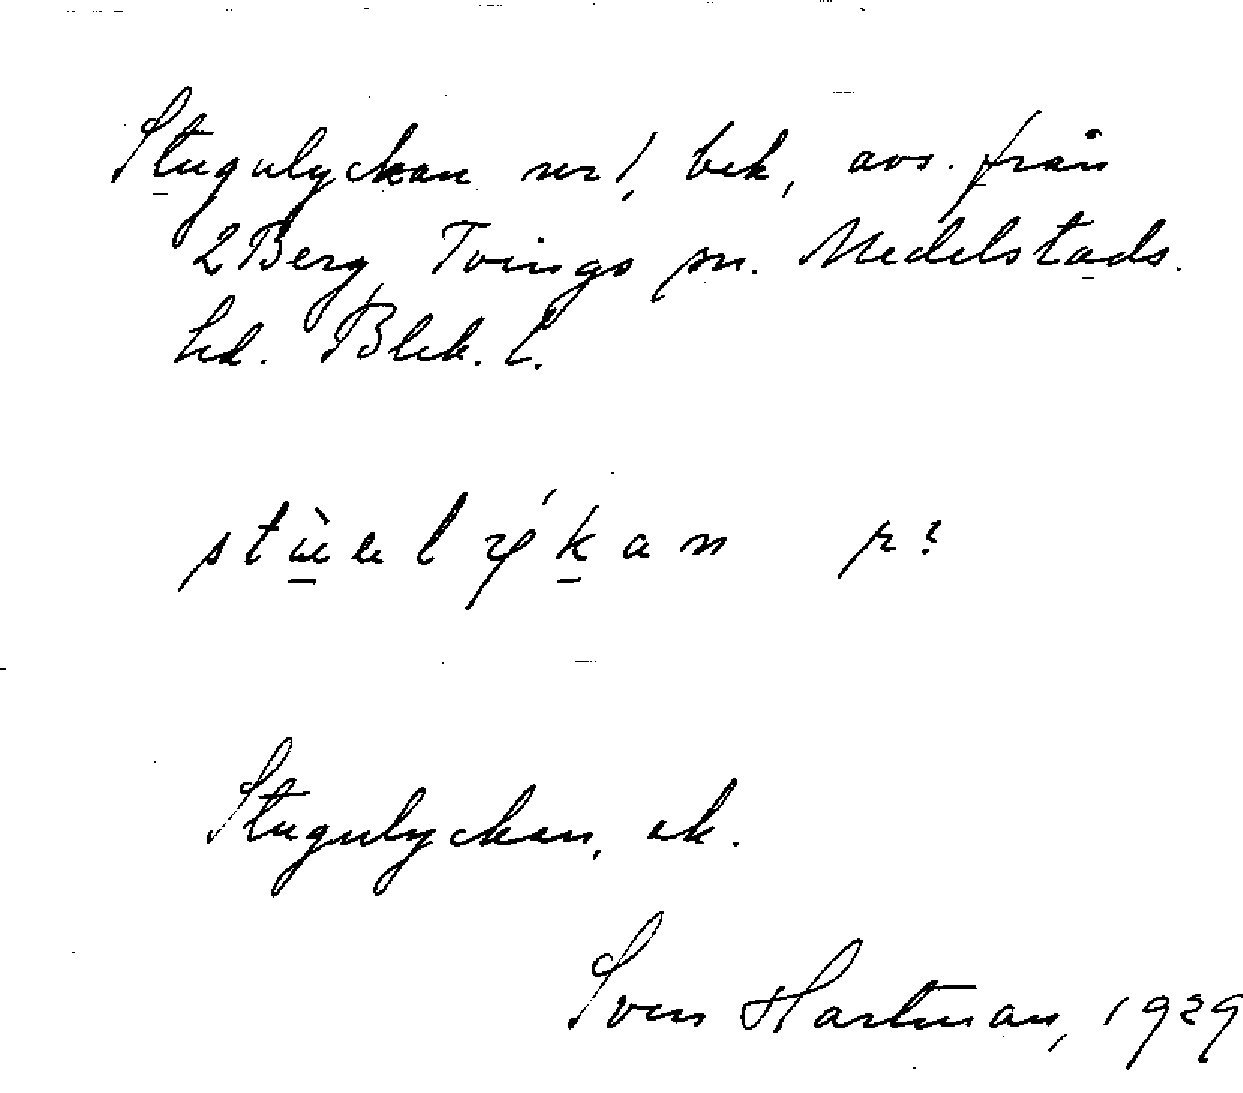 Stugulyckan nr 1, bek, avs. från
2 Berg, Tvings sn. Medelstads
hd. Blek. l.
Stugulyckan, ak.
Sven Hartman, 1929